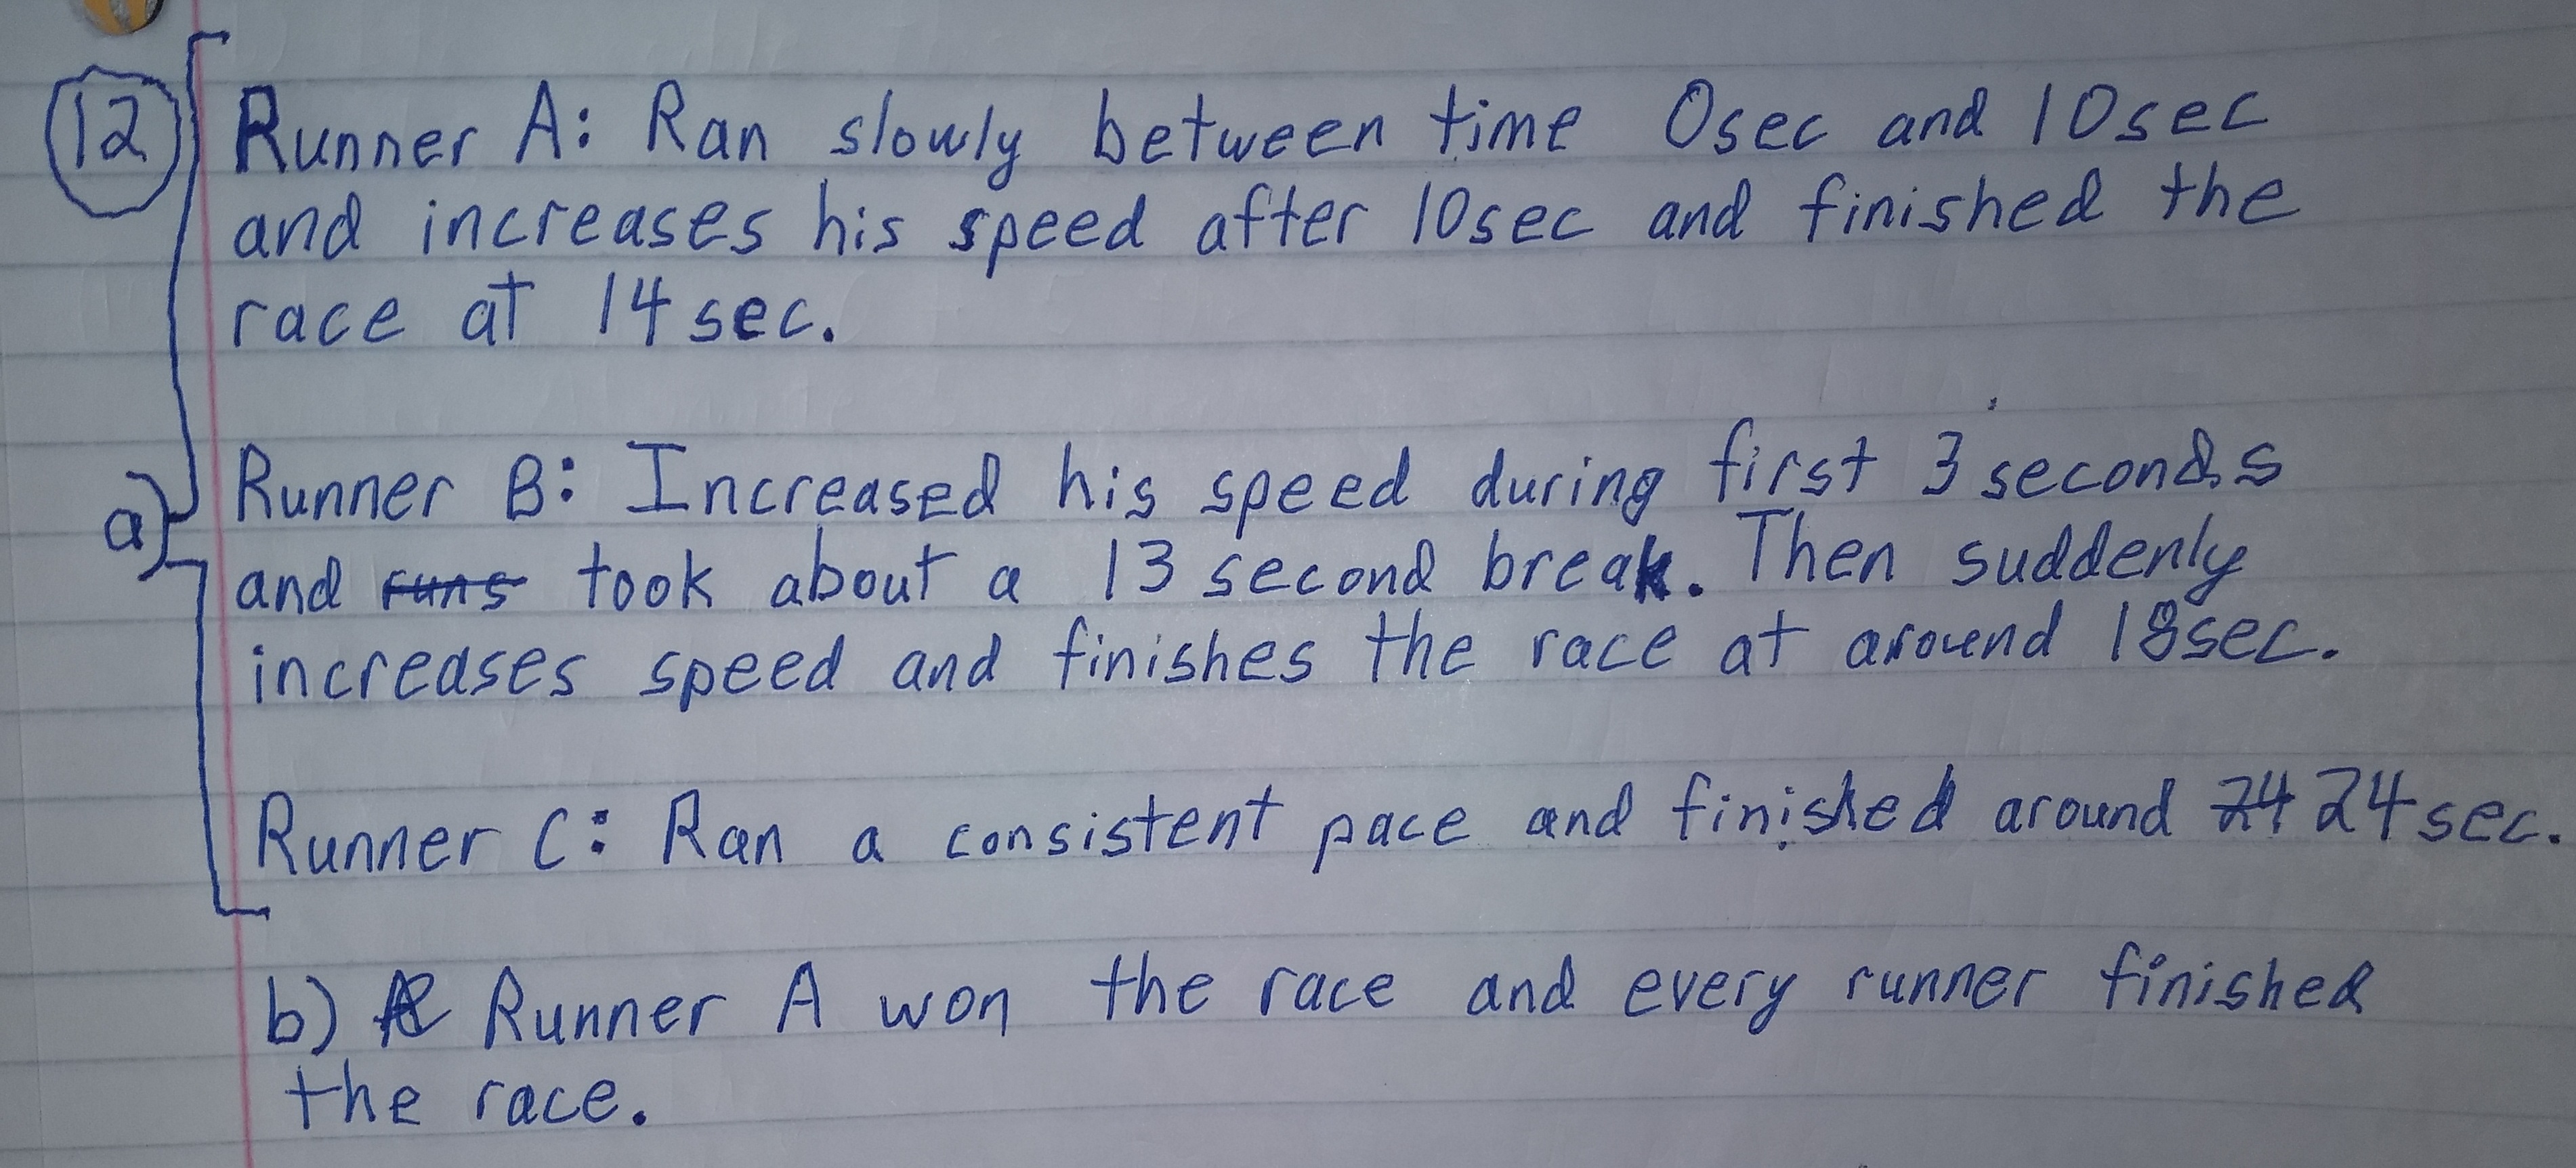 12
Runner A: Ran slowly between time 0sec and 10sec
and increases his speed after 10sec and finished the
race at 14 sec.
a)
Runner B: Increased his speed during first 3 seconds
and runs took about a 13 second break. Then suddenly
increases speed and finishes the race at around 18sec.
Runner C: Ran a consistent pace and finished around 24 24 sec.
b) Runner A won the race and every runner finished
the race.